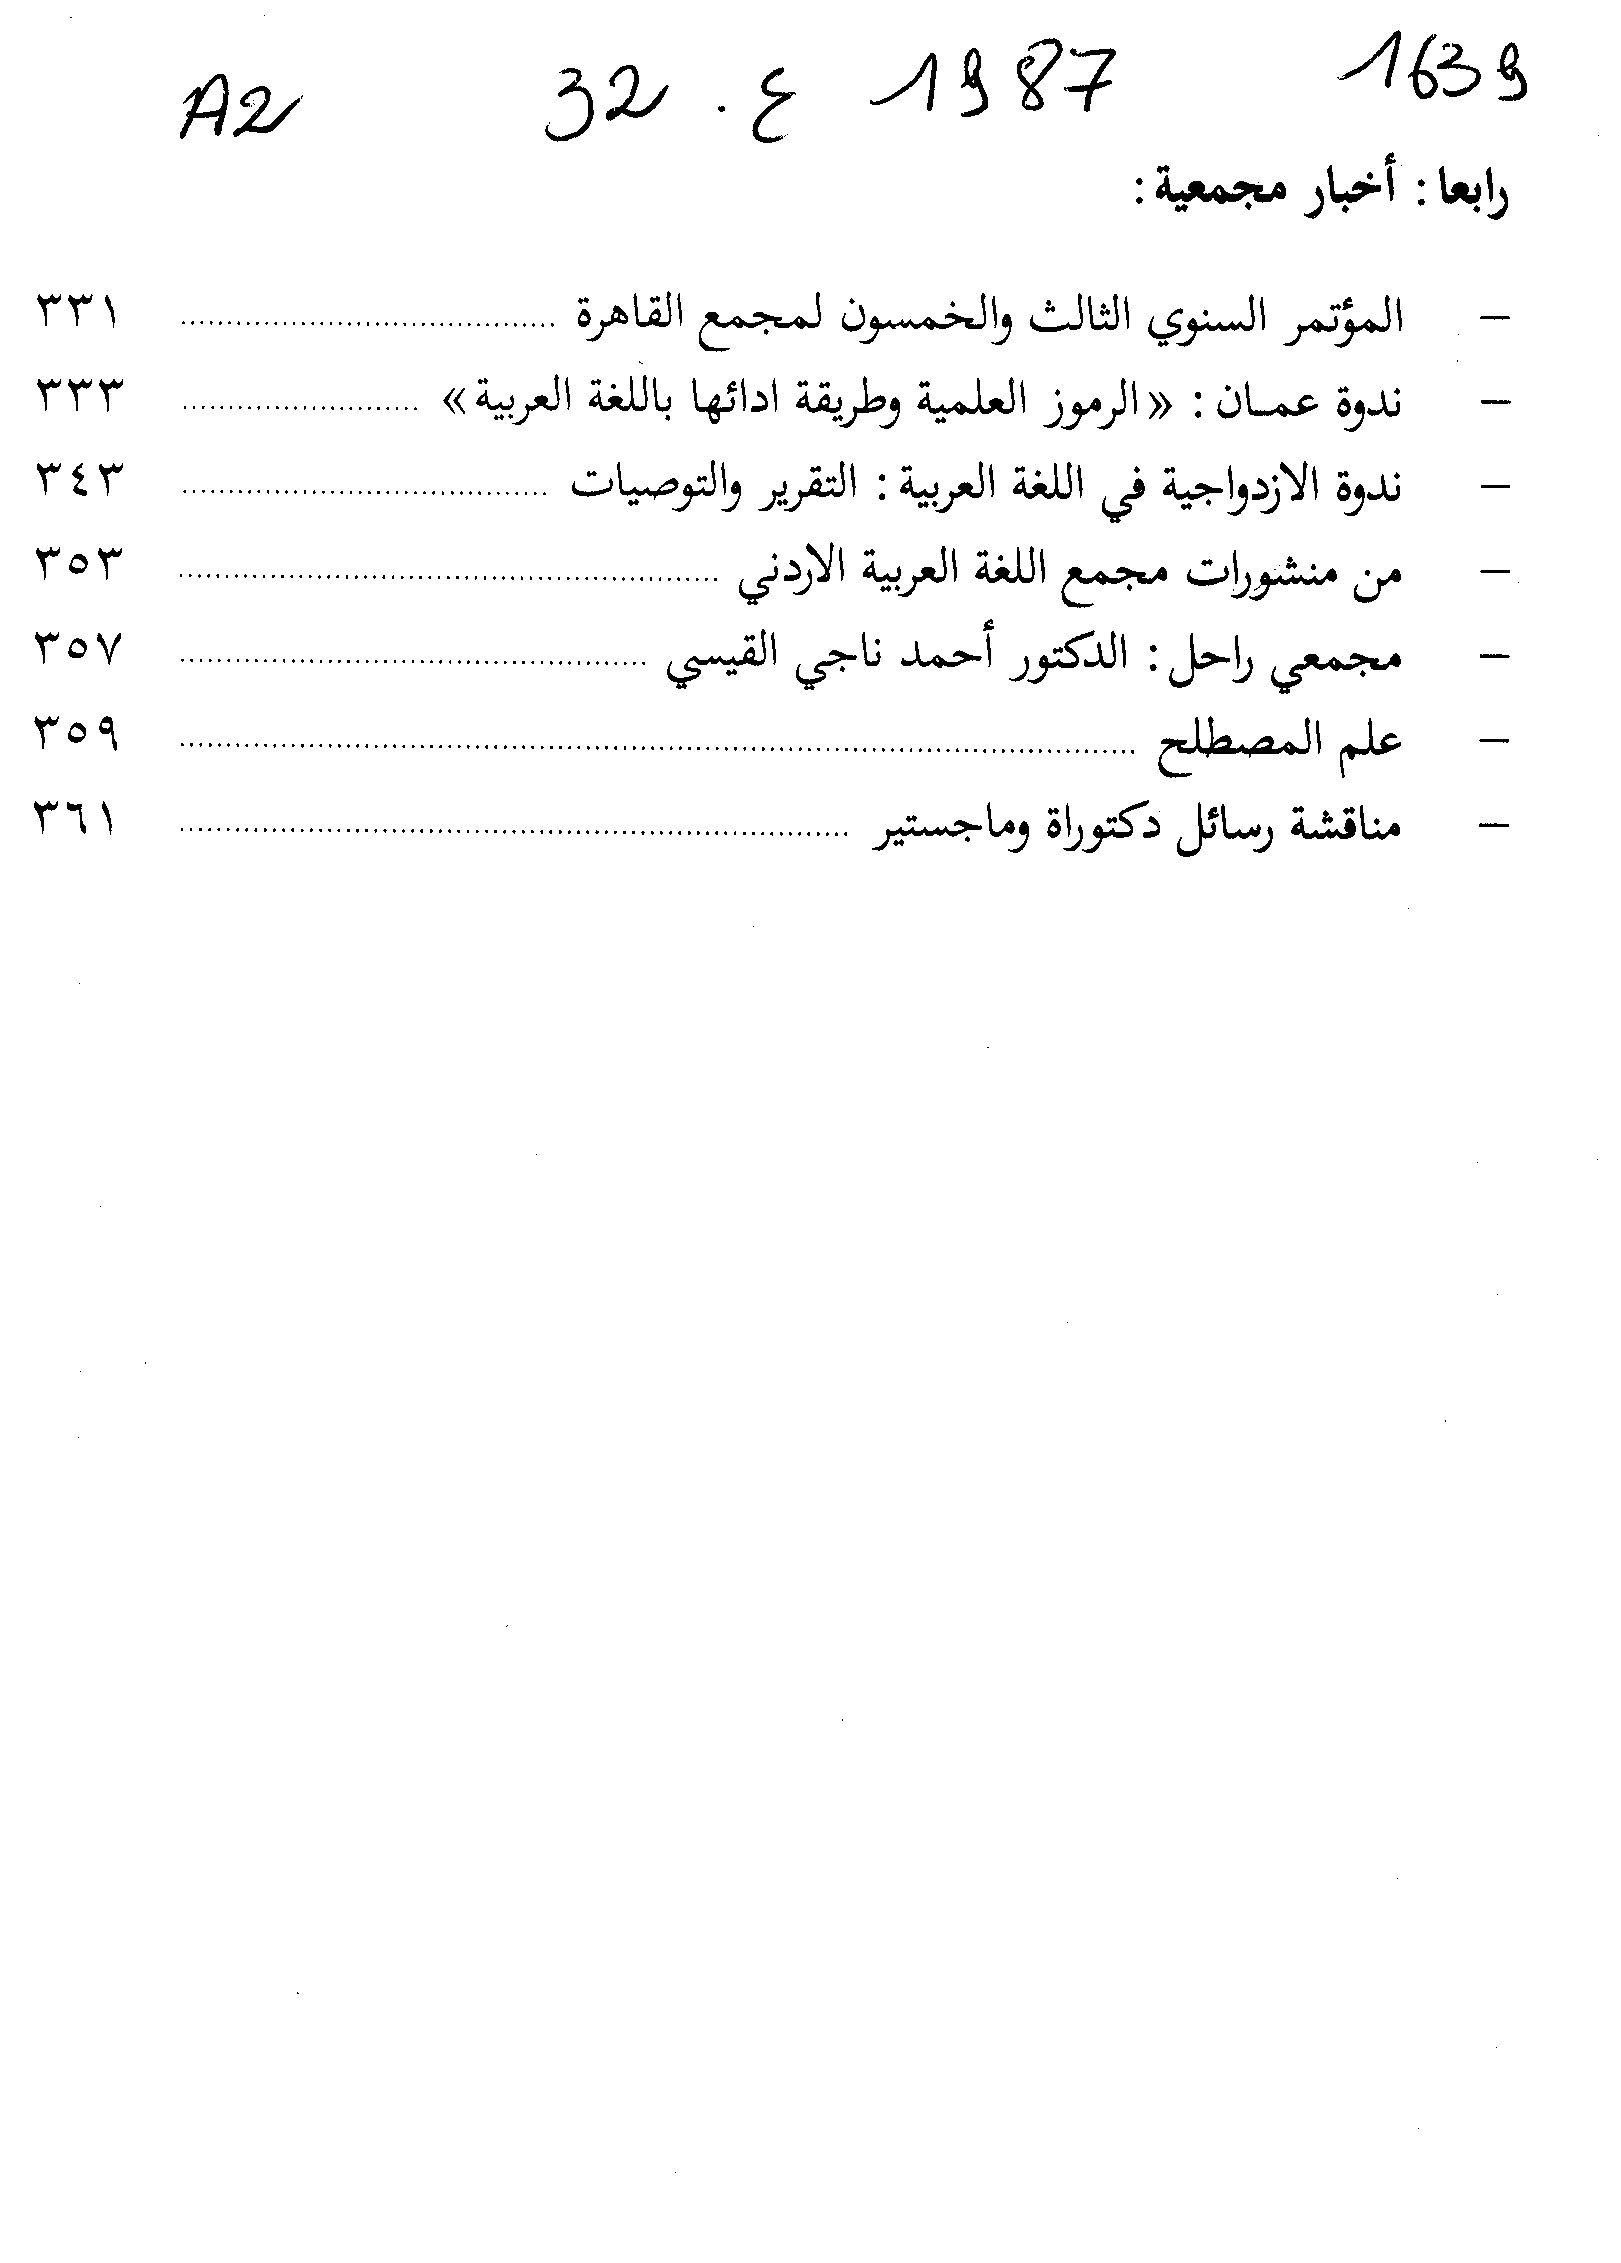 1639 1987 ع . 32 A2
رابعا : أخبار مجمعية :
– المؤتمر السنوي الثالث والخمسون لمجمع القاهرة ........ ٣٣١
– ندوة عمــان : « الرموز العلمية وطريقة ادائها باللغة العربية » ........ ٣٣٣
– ندوة الازدواجية في اللغة العربية : التقرير والتوصيات ........ ٣٤٣
– من منشورات مجمع اللغة العربية الاردني ........ ٣٥٣
– مجمعي راحل : الدكتور أحمد ناجي القيسي ........ ٣٥٧
– علم المصطلح ........ ٣٥٩
– مناقشة رسائل دكتوراة وماجستير ........ ٣٦١